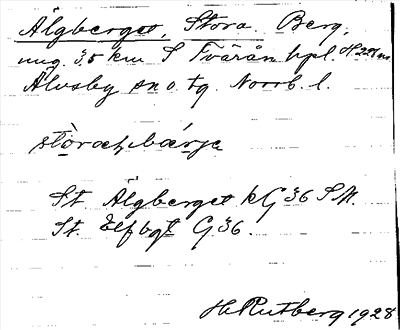 Älgberget, Stora. Berg,
ung. 3,5 km S Tvärån hpl.
Älvsby sn o. tg. Norrb. l.
St. Älgberget kG 36 SM.
St. Elfbgt G. 36.
H Rutberg 1928